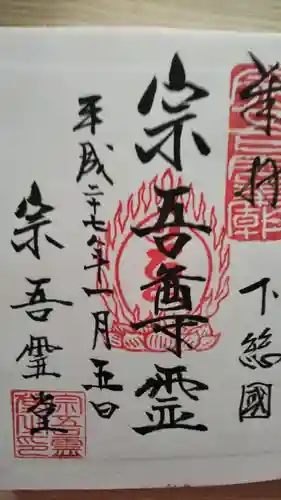 奉拝
下総國
宗吾尊霊
平成二十七年一月五日
宗吾霊堂